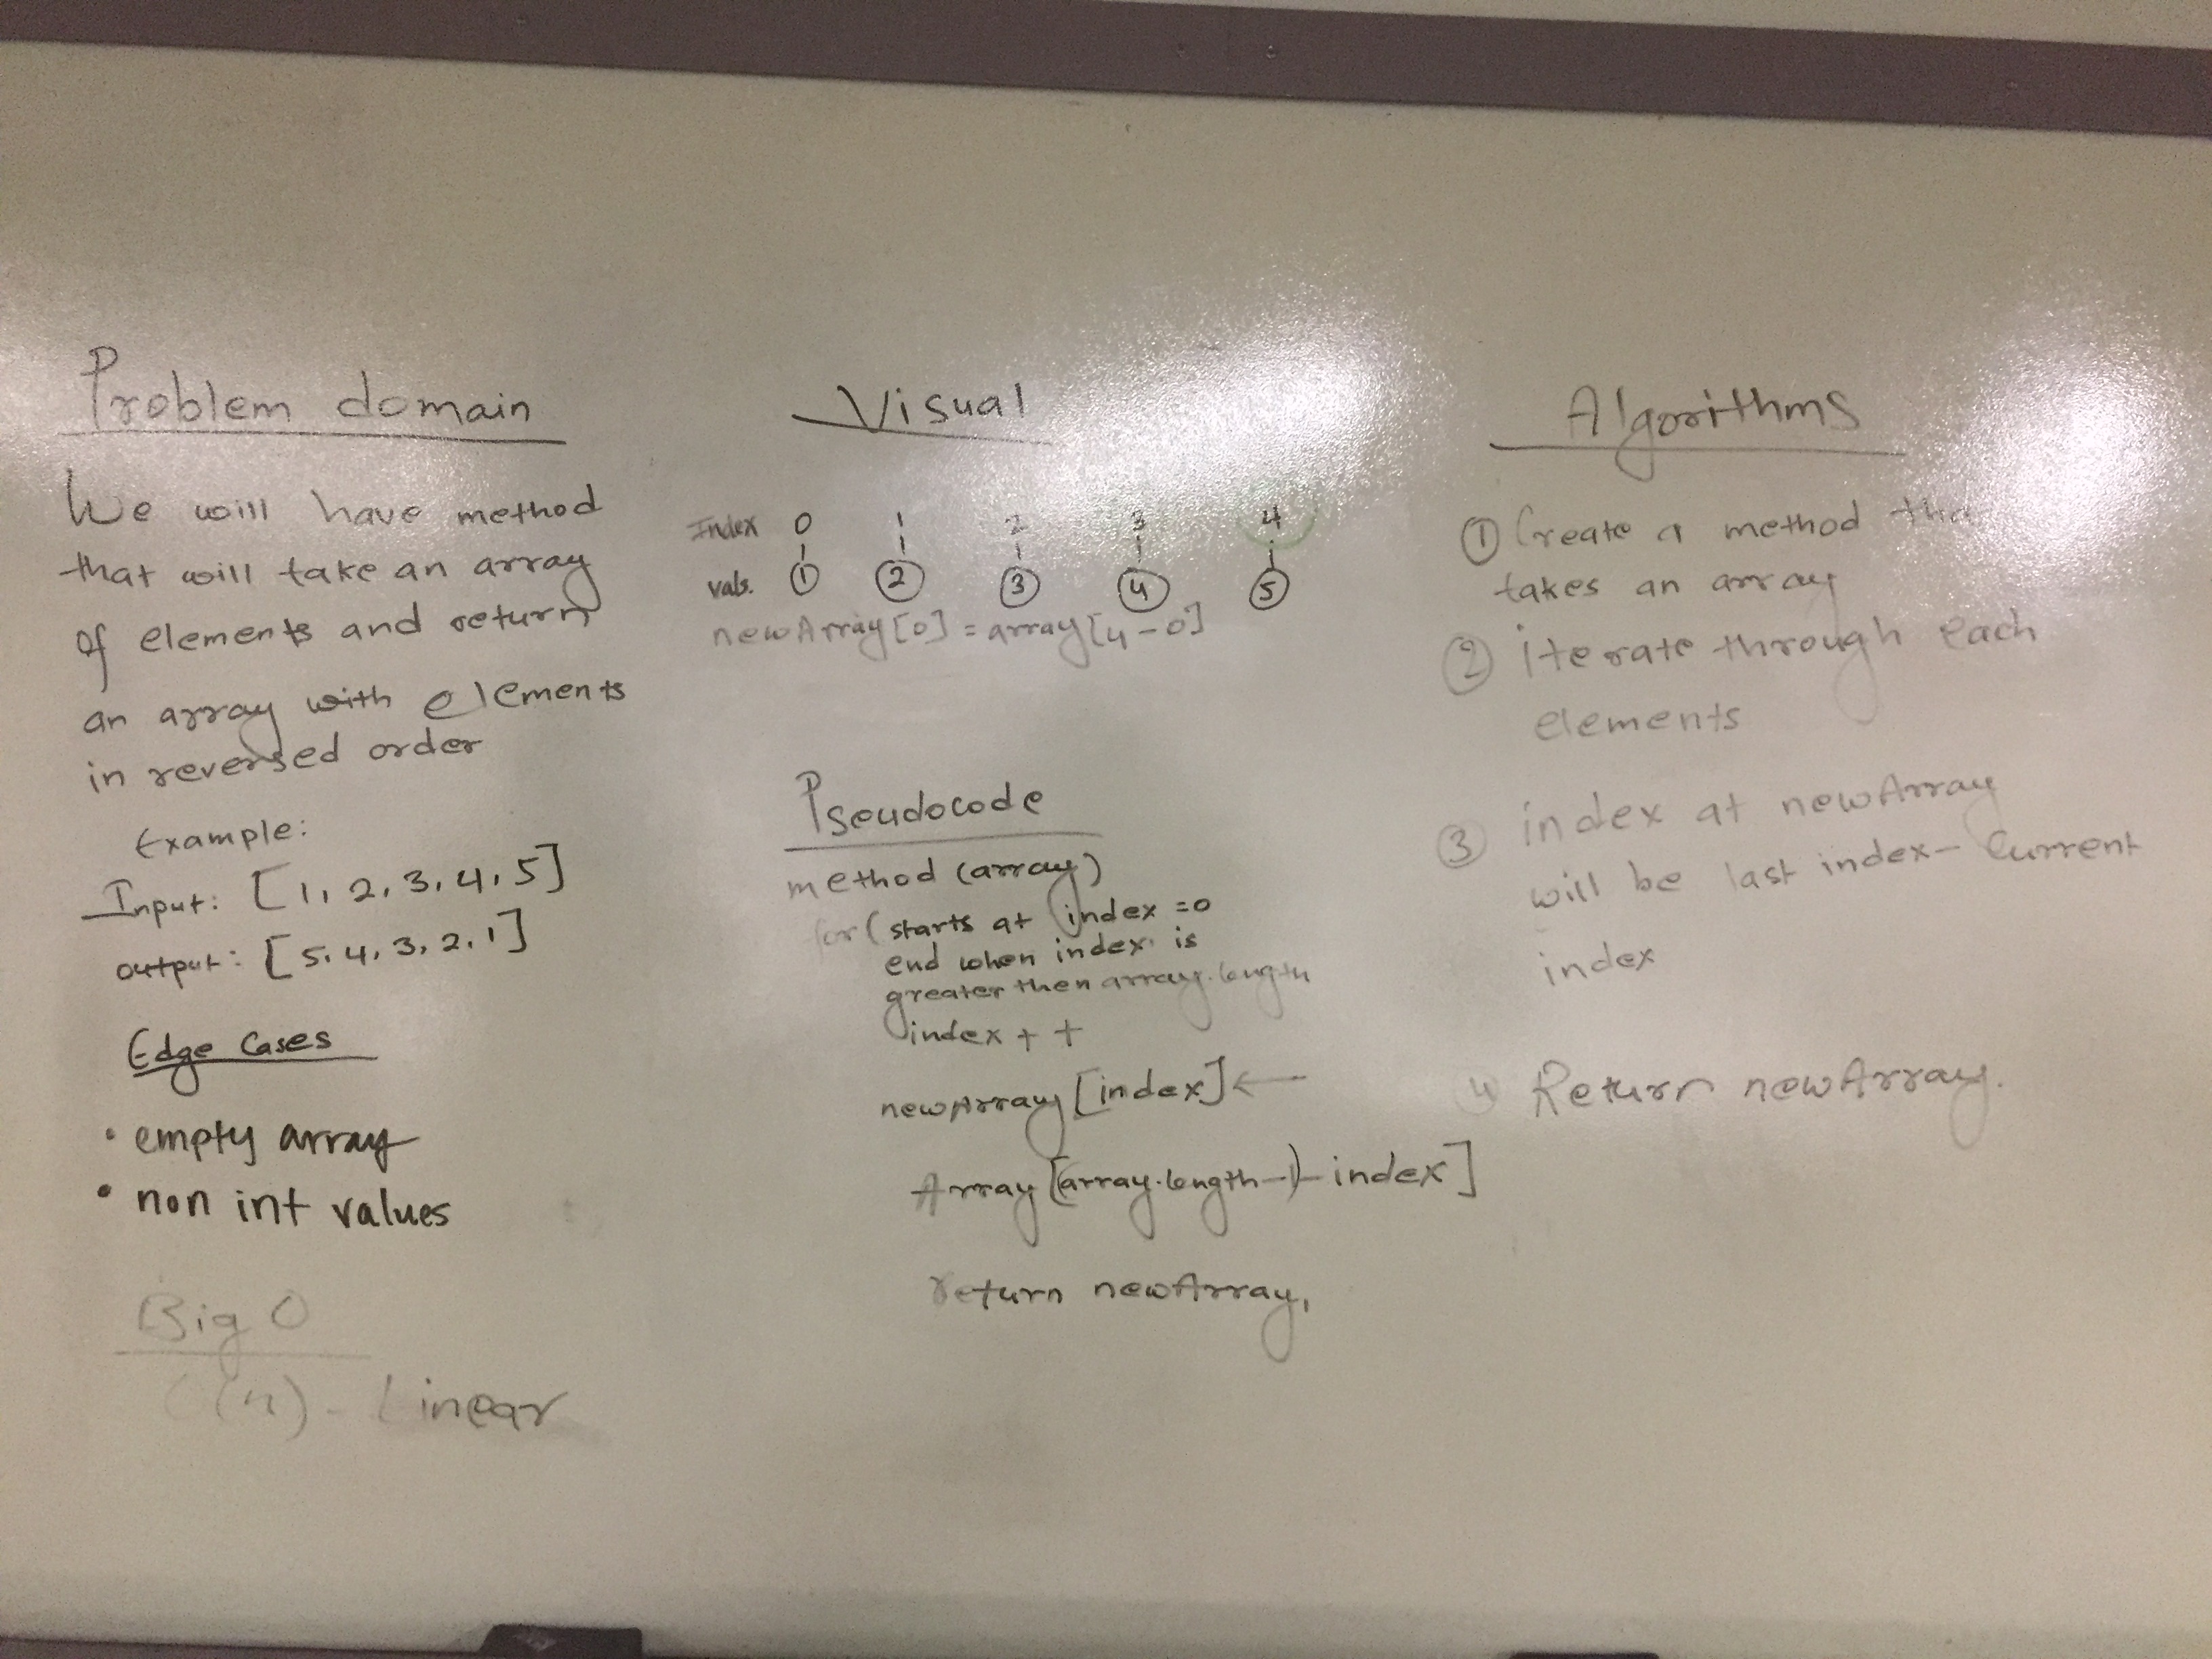 Problem domain
We will have method
that will take an array
of elements and return
an array with elements
in reversed order
Example:
Input: [1, 2, 3, 4, 5]
output: [5, 4, 3, 2, 1]
Edge Cases
• empty array
• non int values
Big O
(n) - Linear
Visual
Index 0 1 2 3 4
vals. 1 2 3 4 5
newArray[0] = array[4-0]
Pseudocode
method (array)
for( starts at index =0
end when index is
greater then array.length
index ++
newArray [index] ←
Array [(array.length-1)- index]
return newArray,
Algorithms
① Create a method
takes an array
② iterate through each
elements
③ index at newArray
will be last index - Current
index
4 Return newArray.